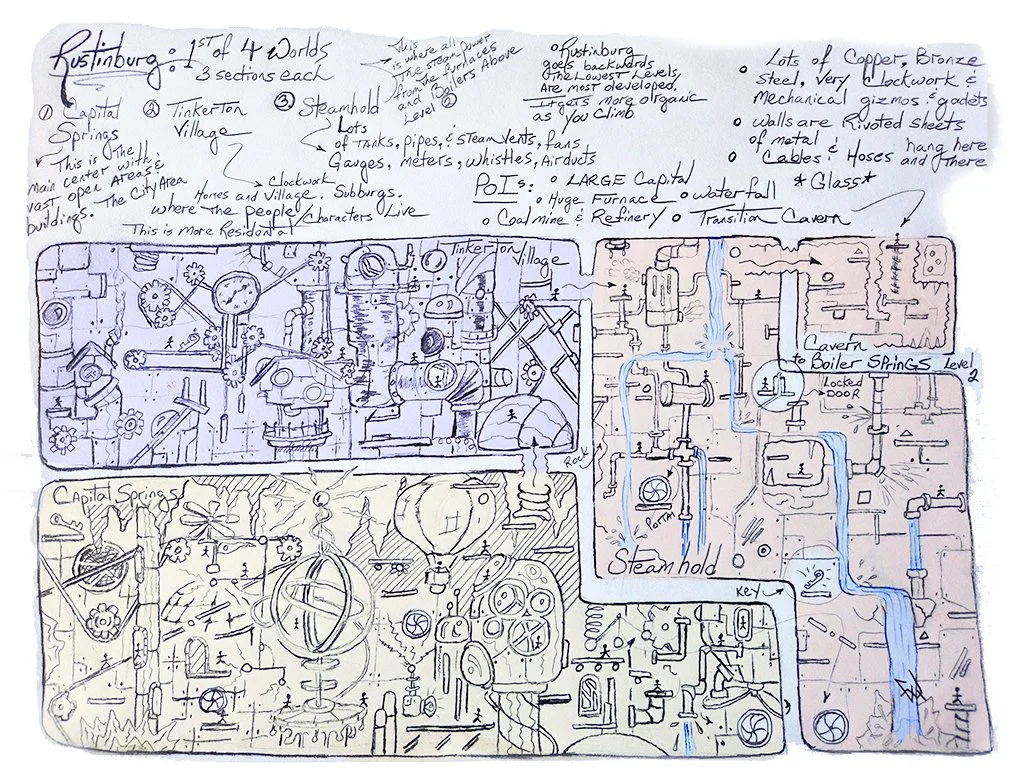 Rustinburg: 1ST of 4 Worlds
3 sections each
① Capital
Springs
This is The
Main center with
vast open Areas &
buildings. The City Area
② Tinkerton
Village
Clockwork
Homes and Village. Suburgs.
where the people/Characters Live
This is more Residental
③ Steamhold
Lots
of Tanks, pipes, & steam vents, fans
Gauges, meters, whistles, Airducts
This
is where all
The steam power
from the furnaces
and Boilers Above
Level ②
Rustinburg
goes backwards
The Lowest Levels
Are most developed.
It gets more organic
as you climb
Lots of Copper, Bronze
Steel, Very Clockwork &
Mechanical gizmos & gadets
Walls are Rivoted sheets
of metal &
Cables & Hoses
hang here
and There
PoIs:
LARGE Capital
Huge Furnace
Waterfall
Coalmine & Refinery
Transition Cavern
*Glass*
Tinkerton Village
Cavern
to Boiler Springs Level
2
Locked
DOOR
Rock
Portal
Steamhold
Capital Springs
Key